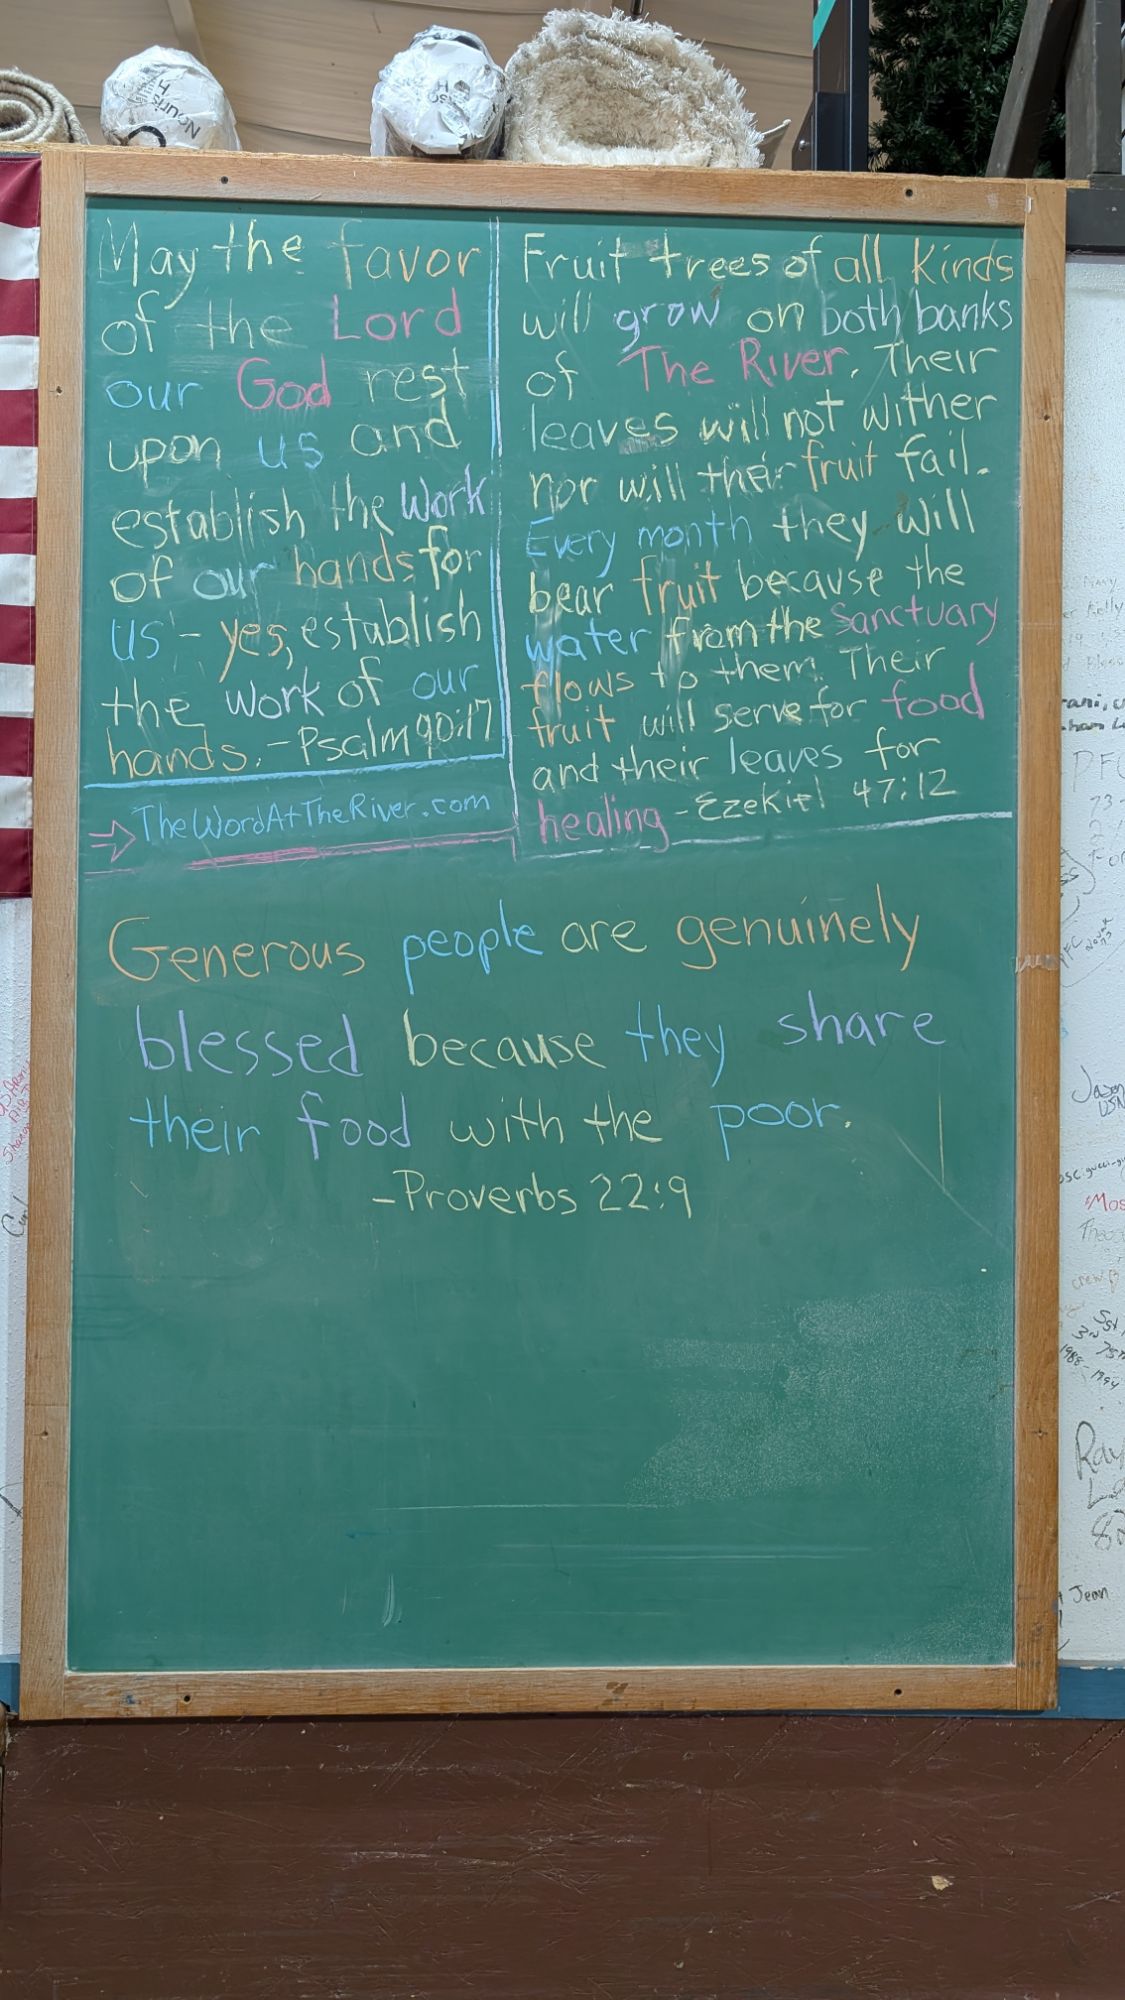 May the favor
of the Lord
our God rest
upon us and
establish the work
of our hands for
us - yes, establish
the work of our
hands. - Psalm 90:17
TheWordAtTheRiver.com
Fruit trees of all kinds
will grow on both banks
of The River. Their
leaves will not wither
nor will their fruit fail.
Every month they will
bear fruit because the
water from the Sanctuary
flows to them. Their
fruit will serve for food
and their leaves for
healing - Ezekiel 47:12
Generous people are genuinely
blessed because they share
their food with the poor.
- Proverbs 22:9
Nourish
Jason
USN
1988-1994
Ray
Jean